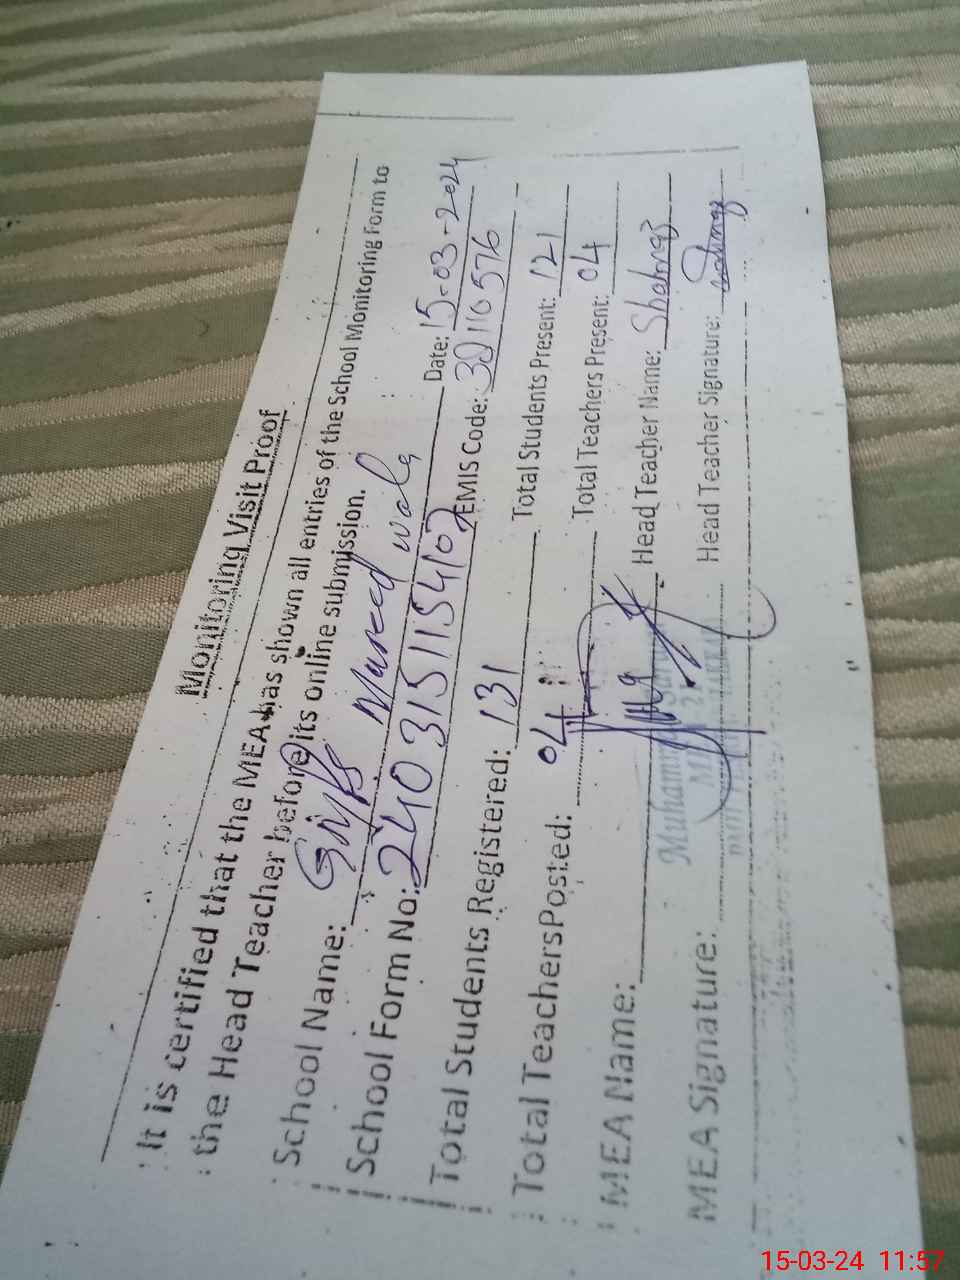 Monitoring Visit Proof
It is certified that the MEA has shown all entries of the School Monitoring Form to
the Head Teacher before its online submission.
School Name: GMPS Mureed wala Date: 15-03-2024
School Form No: 2403151154102 EMIS Code: 32110576
Total Students Registered: 131 Total Students Present: 121
Total TeachersPosted: 04 Total Teachers Present: 04
MEA Name: Head Teacher Name: Shahnaz
MEA Signature: Head Teacher Signature: Shahnaz
15-03-24 11:57